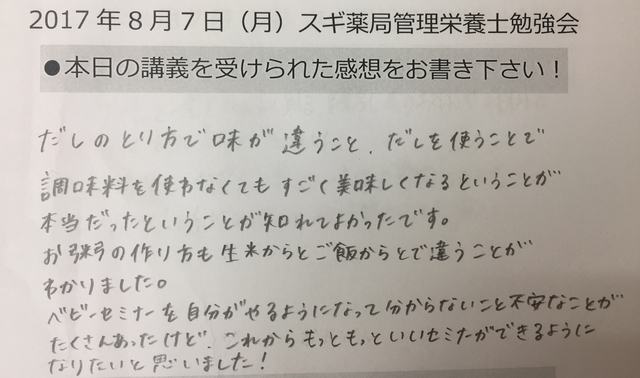 2017年8月7日（月）スギ薬局管理栄養士勉強会
●本日の講義を受けられた感想をお書き下さい！
だしのとり方で味が違うこと、だしを使うことで
調味料を使わなくてもすごく美味しくなるということが
本当だったということが知れてよかったです。
お粥の作り方も生米からとご飯からとで違うことが
わかりました。
ベビーセミナーを自分がやるようになって分からないこと不安なことが
たくさんあったけど、これからもっともっといいセミナーができるように
なりたいと思いました！